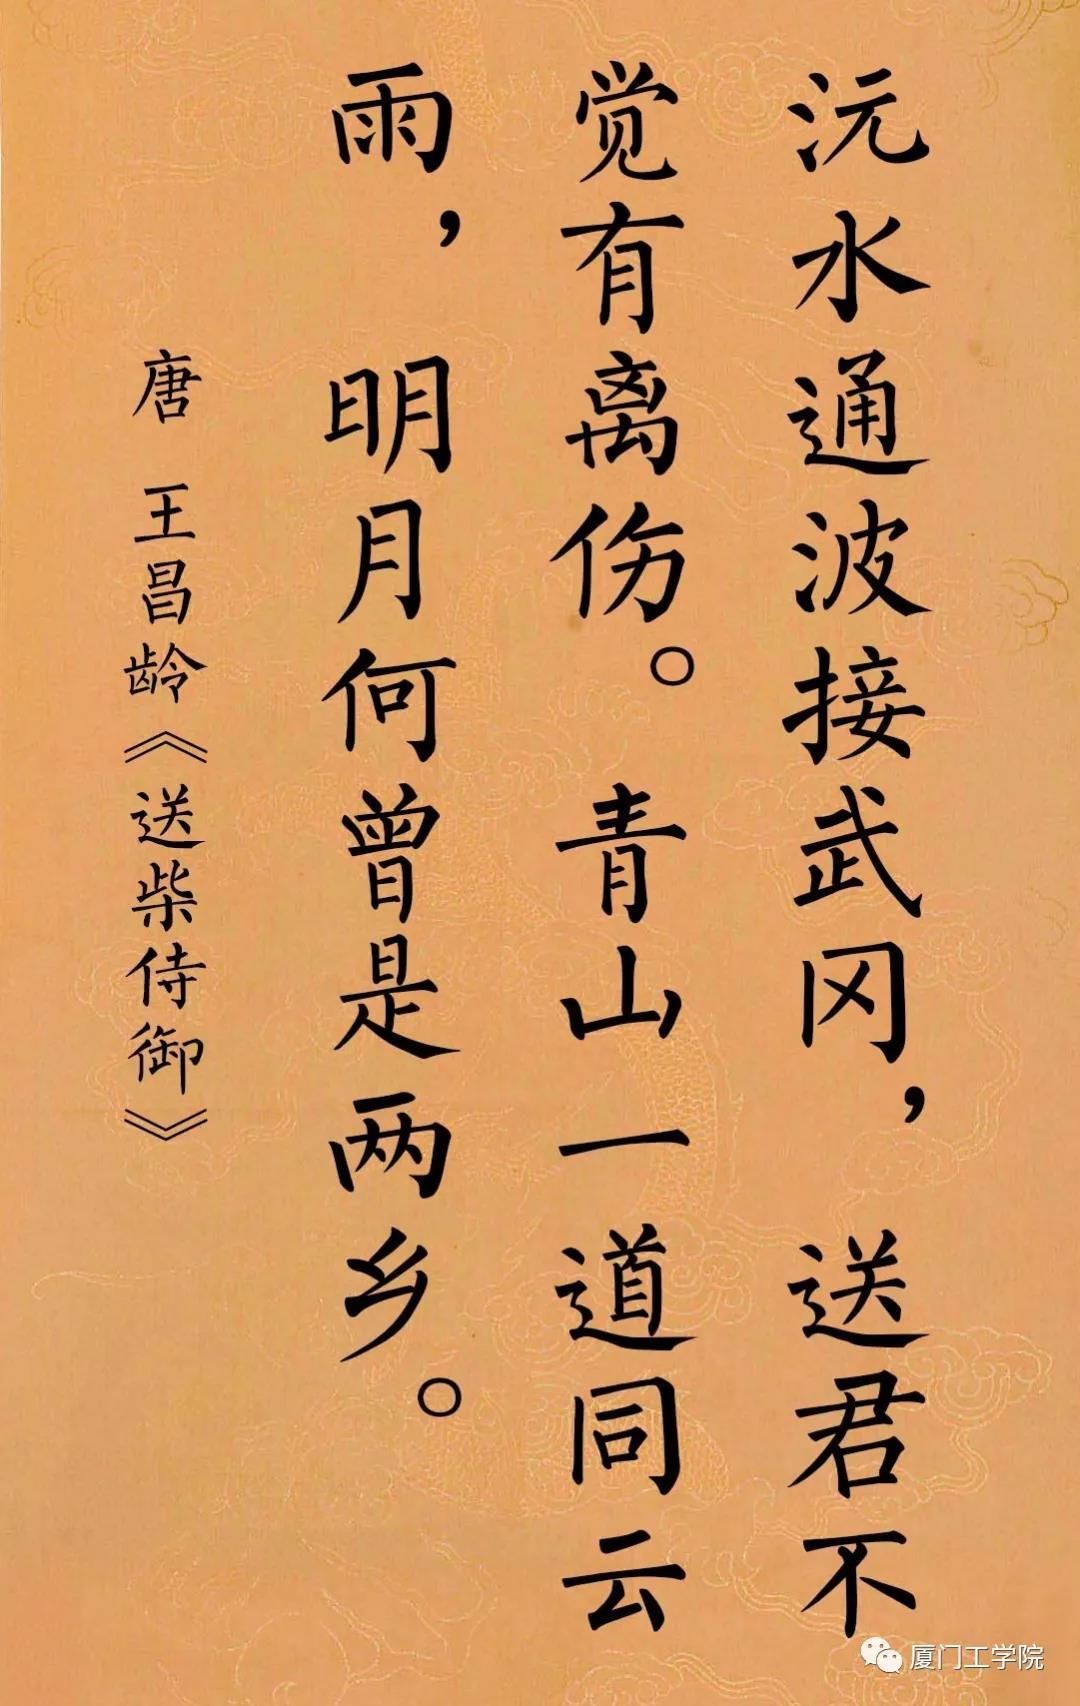 沅水通波接武冈，送君不
觉有离伤。青山一道同云
雨，明月何曾是两乡。
唐 王昌龄《送柴侍御》
厦门工学院